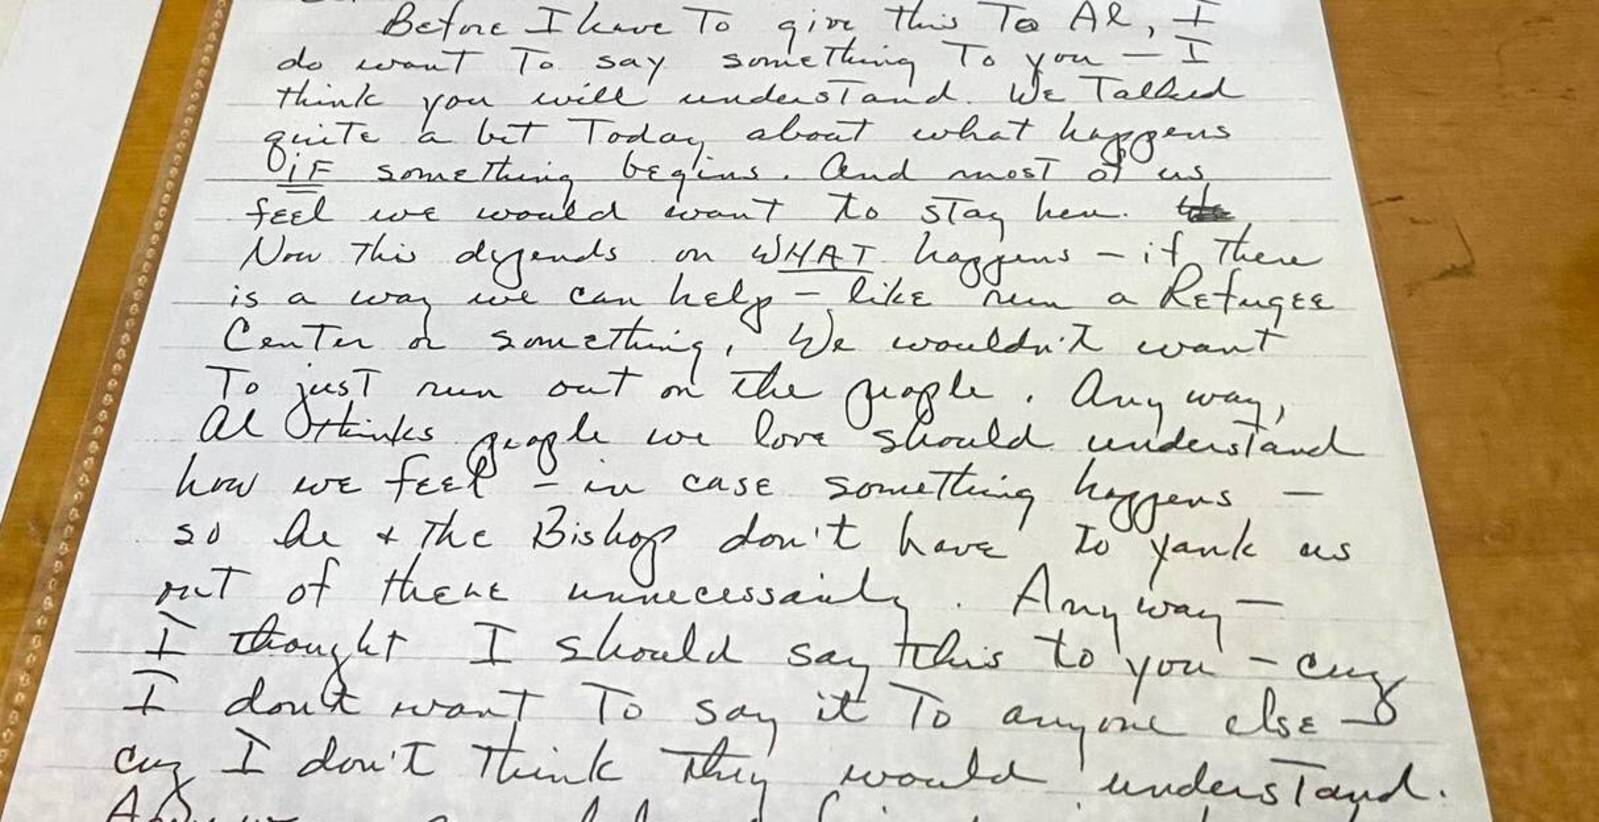 Before I have To give this To Al, I
do want To say something To you — I
think you will understand. We Talked
quite a bit Today about what happens
iF something begins. And most of us
feel we would want to stay here.
Now this depends on WHAT happens – if There
is a way we can help – like run a Refugee
Center or something, We wouldn't want
To just run out on the people. Any way,
Al thinks people we love should understand
how we feel – in case something happens –
so he + the Bishop don't have to yank us
out of there unnecessarily. Any way –
I thought I should say this to you – cuz
I don't want To say it To anyone else –
cuz I don't Think They would understand.